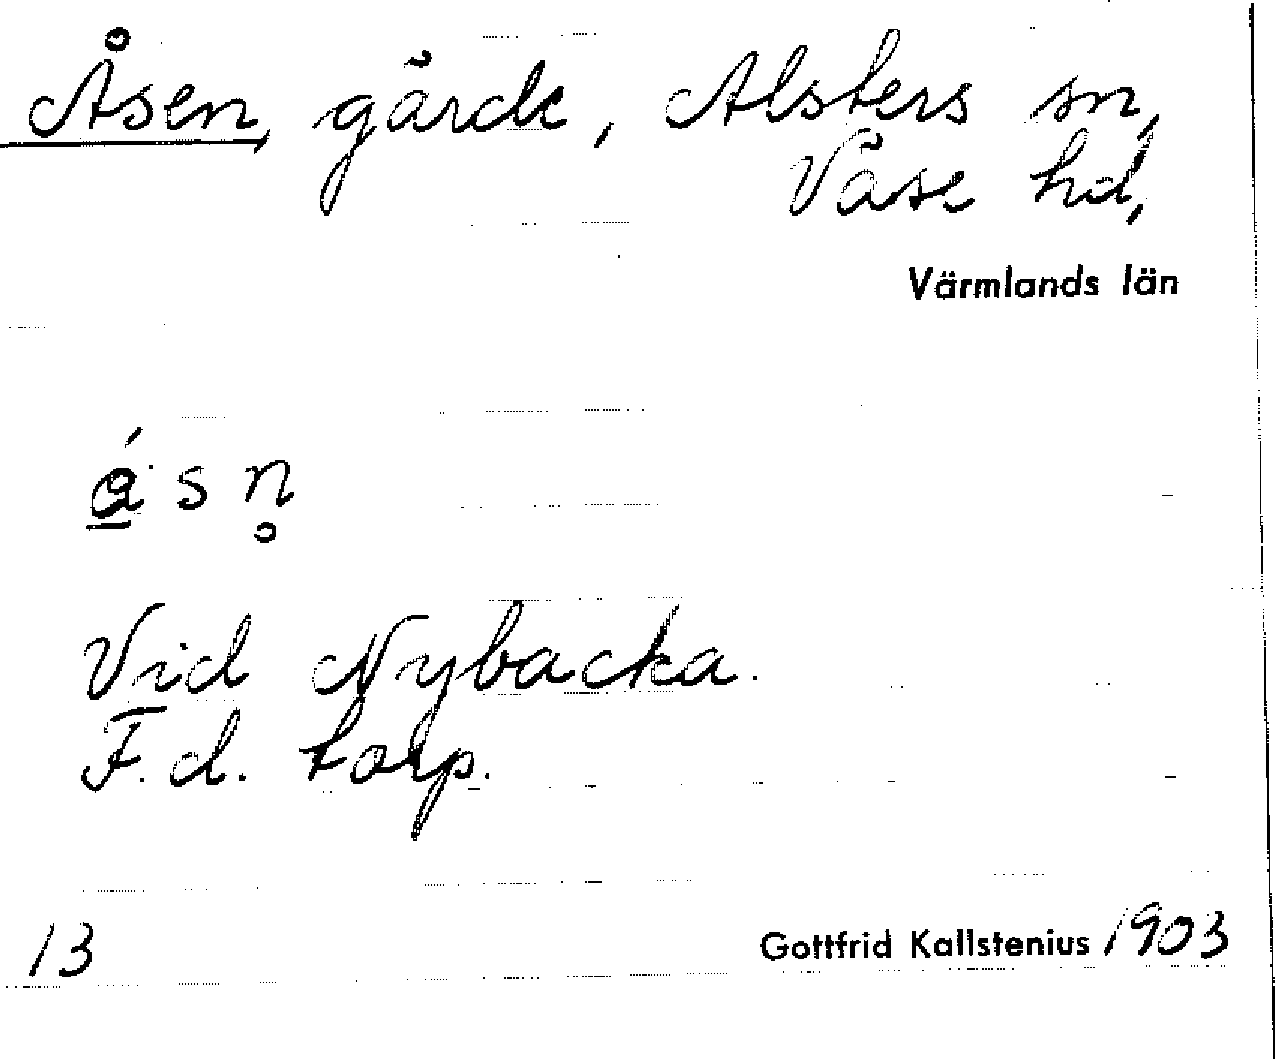 Åsen, gärde, Alsters sn,
Väse hd,
Värmlands län
Vid Nybacka.
F.d. torp.
13
Gottfrid Kallstenius 1903